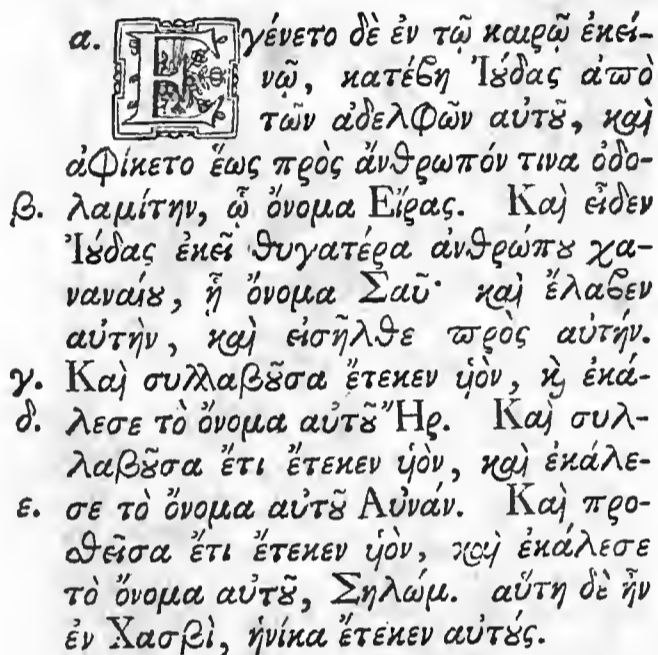 α. Ἐγένετο δὲ ἐν τῷ καιρῷ ἐκεί-
νῷ, κατέβη Ἰȣ́δας ἀπὸ
τῶν ἀδελφῶν αὐτȣ͂, καὶ
ἀφίκετο ἕως πρὸς ἄνθρωπόν τινα ὀδο-
β. λαμίτην, ᾧ ὄνομα Εἴρας. Καὶ εἶδεν
Ἰȣ́δας ἐκεῖ θυγατέρα ἀνθρώπȣ χα-
ναναίȣ, ᾗ ὄνομα Σαῦ· καὶ ἔλαβεν
αὐτὴν, καὶ εἰσῆλθε πρὸς αὐτήν.
γ. Καὶ συλλαβȣ͂σα ἔτεκεν υἱὸν, ϗ ἐκά-
δ. λεσε τὸ ὄνομα αὐτȣ͂ Ἤρ. Καὶ συλ-
λαβȣ͂σα ἔτι ἔτεκεν υἱὸν, καὶ ἐκάλε-
ε. σε τὸ ὄνομα αὐτȣ͂ Αὐνάν. Καὶ προ-
θεῖσα ἔτι ἔτεκεν υἱὸν, καὶ ἐκάλεσε
τὸ ὄνομα αὐτȣ͂, Σηλώμ. αὕτη δὲ ἦν
ἐν Χασβὶ, ἡνίκα ἔτεκεν αὐτȣ́ς.